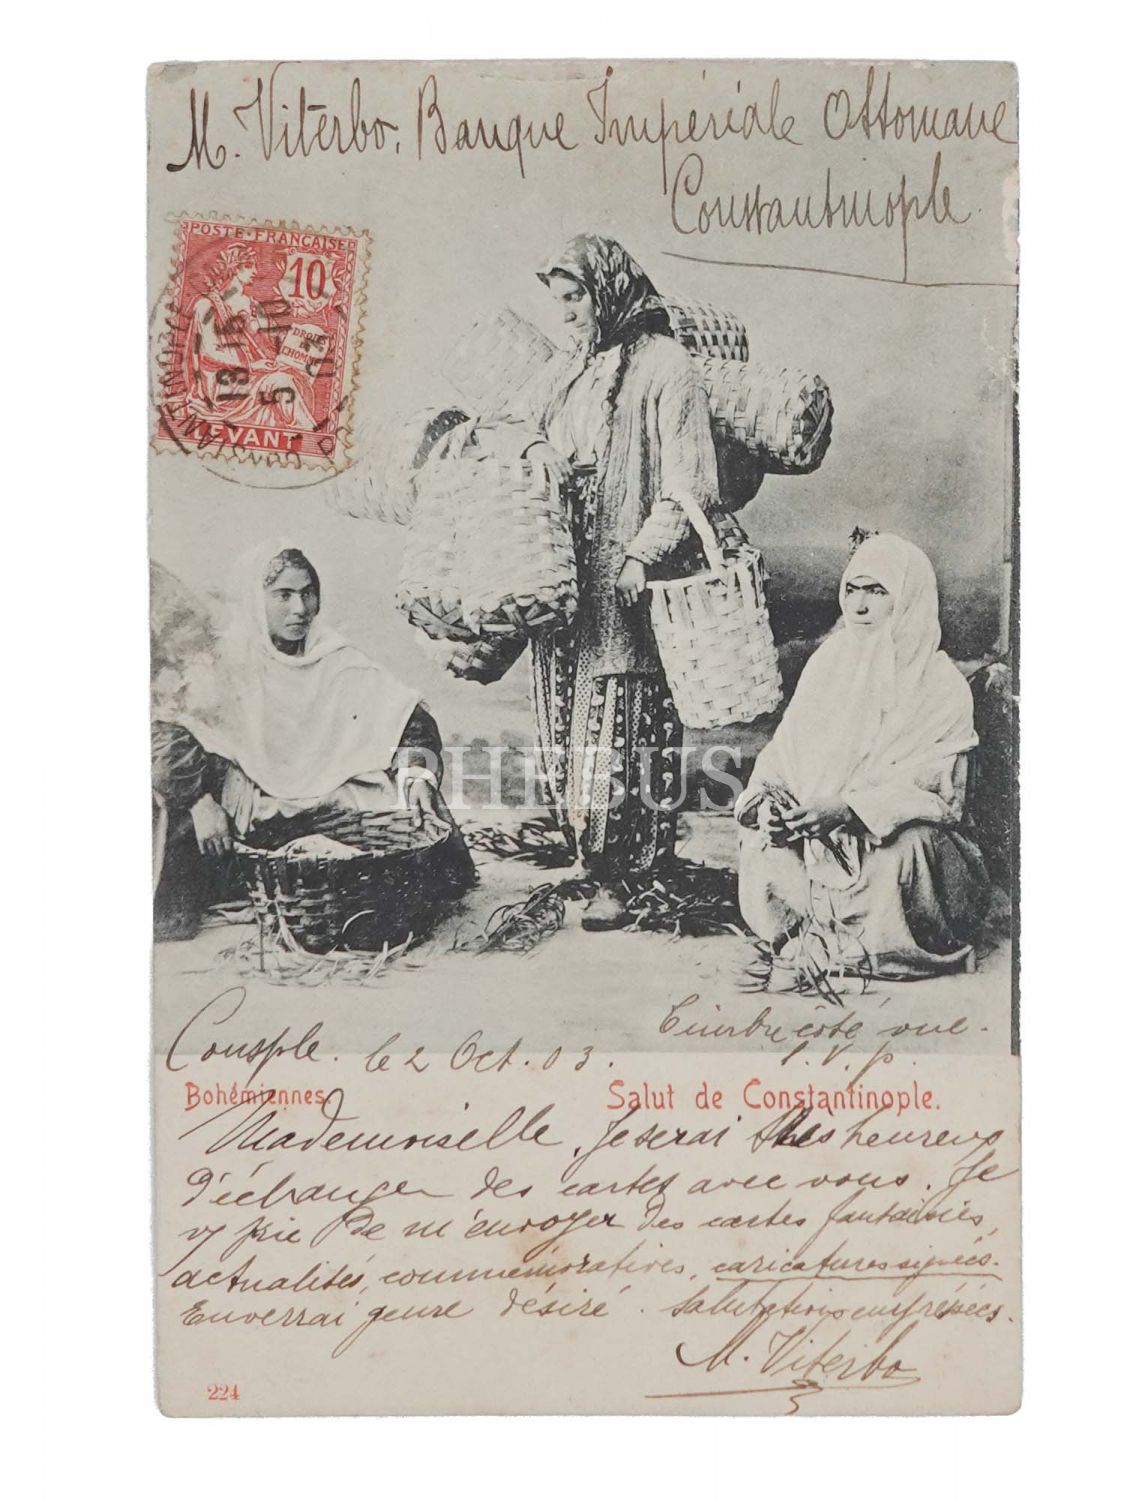 M. Viterbo, Banque Impériale Ottomane
Constantinople.
POSTE FRANÇAISE
10
DROITS
HOMME
LEVANT
CONSTANTINOPLE
19 15
5 10
03
PHEBUS
Consple. le 2 Oct. 03.
Timbre côté vue.
S. V. p.
Bohémiennes.
Salut de Constantinople.
Mademoiselle, Je serai très heureux
d'échanger des cartes avec vous. Je
v/ prie de m'envoyer des cartes fantaisies,
actualités, commémoratives, caricatures signées.
Enverrai genre désiré. Salutations empressées.
M. Viterbo
224